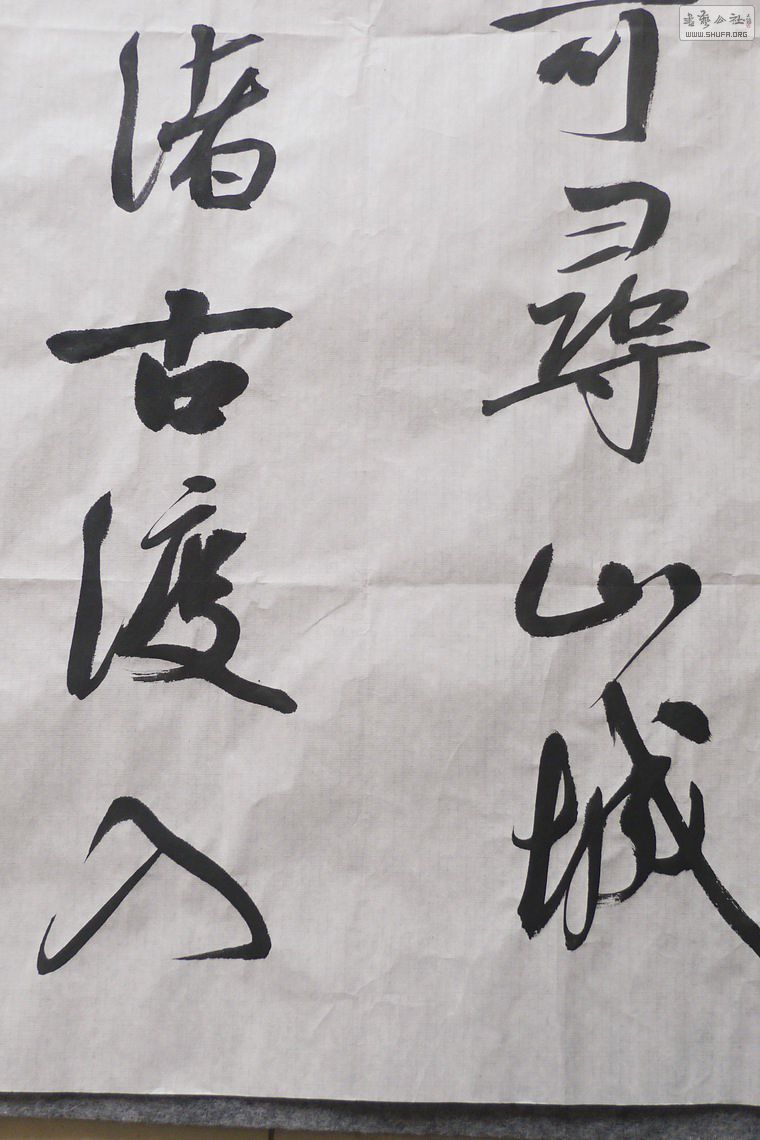 可尋山城
渚古渡入
書藝公社
WWW.SHUFA.ORG